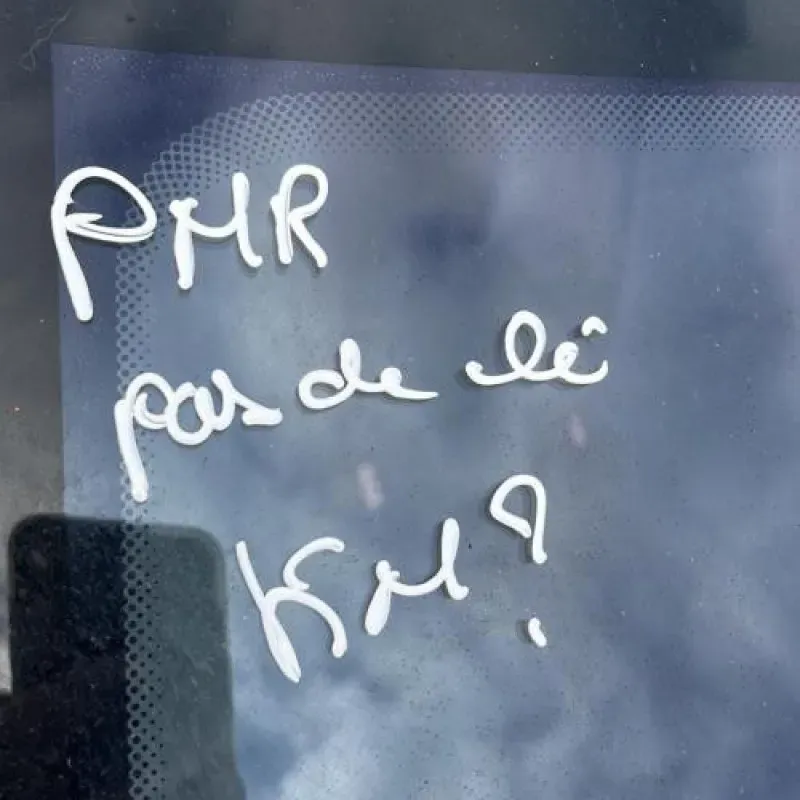 PMR
pas de lê
KM?